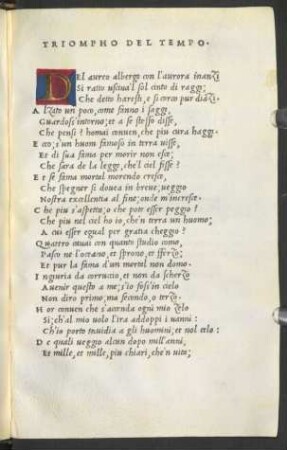 TRIOMPHO DEL TEMPO.
DEl aureo albergo con l'aurora inanzi
Si ratto usciua'l sol cinto di raggi;
Che detto haresti, e si corcò pur dianzi.
Alzato un poco, come fanno i saggi,
Guardosi intorno; et a se stesso disse,
Che pensi? homai conuen, che piu cura haggi.
Ecco; s'un huom famoso in terra uisse,
Et di sua fama per morir non esce;
Che sara de la legge, che'l ciel fisse?
E t se fama mortal morendo cresce,
Che spegner si doueа in breue; ueggio
Nostra excellentia al fine; onde m'incresce.
Che piu s'aspetta; o che pote esser peggio?
Che piu nel ciel ho io, che'n terra un huomo;
A cui esser equal per gratia cheggio?
Quattro cauai con quanto studio como,
Pasco ne l'oceano, et sprono, et sferzo;
Et pur la fama d'un mortal non domo.
Ingiuria da corruccio, et non da scherzo
Auenir questo a me; s'io fossi'n cielo
Non diro primo, ma secondo, o terzo.
Hor conuen che s'accenda ogni mio zelo
Si; ch'al mio uolo l'ira addoppi i uanni:
Ch'io porto inuidia a gli huomini; et nol celo:
De quali ueggio alcun dopo mill'anni,
Et mille, et mille, piu chiari, che'n uita;